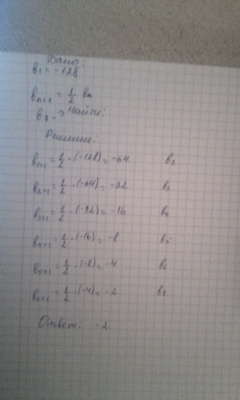 Дано:
b₁ = -128
bₙ₊₁ = 1/2 bₙ
Найти:
b₇ - ?
Решение.
bₙ₊₁ = 1/2 · (-128) = -64 b₂
bₙ₊₁ = 1/2 · (-64) = -32 b₃
bₙ₊₁ = 1/2 · (-32) = -16 b₄
bₙ₊₁ = 1/2 · (-16) = -8 b₅
bₙ₊₁ = 1/2 · (-8) = -4 b₆
bₙ₊₁ = 1/2 · (-4) = -2 b₇
Ответ: -2